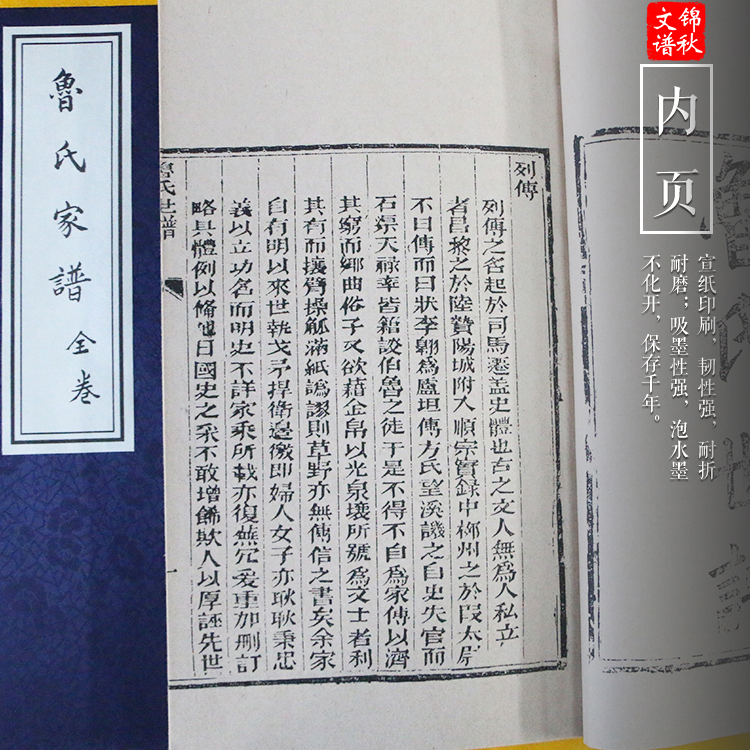 魯氏家譜 全卷
魯氏世譜
列傳
列傳之名起於司馬遷蓋史體也古之文人無為人私立
者昌黎之於陸贄陽城附入順宗實録中柳州之於段太尉
不曰傳而曰狀李翱為盧坦傳方氏望溪譏之自史失官而
石渠天祿率皆籍談伯魯之徒于是不得不自為家傳以濟
其窮而鄉曲俗子又欲藉金帛以光泉壤所號為文士者利
其有而攘臂操觚滿紙譌謬則草野亦無傳信之書矣余家
自有明以來世執戈矛捍衛邊徼即婦人女子亦耿耿秉忠
義以立功名而明史不詳家乘所載亦復蕪冗爰重加刪訂
略具體例以條他日國史之采不敢增飾欺人以厚誣先世
一
錦秋
文譜
内页
宣纸印刷，韧性强，耐折
耐磨；吸墨性强，泡水墨
不化开，保存千年。